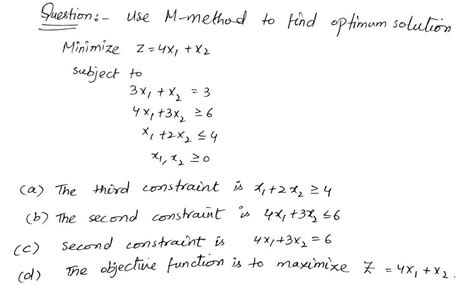 Question:- Use M-method to find optimum solution
Minimize Z = 4x₁ + x₂
subject to
3x₁ + x₂ = 3
4x₁ + 3x₂ ≥ 6
x₁ + 2x₂ ≤ 4
x₁, x₂ ≥ 0
(a) The third constraint is x₁ + 2x₂ ≥ 4
(b) The second constraint is 4x₁ + 3x₂ ≤ 6
(c) Second constraint is 4x₁ + 3x₂ = 6
(d) The objective function is to maximize Z = 4x₁ + x₂.